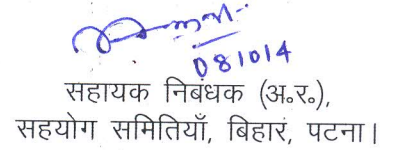 081014
सहायक निबंधक (अ०र०),
सहयोग समितियाँ, बिहार, पटना।